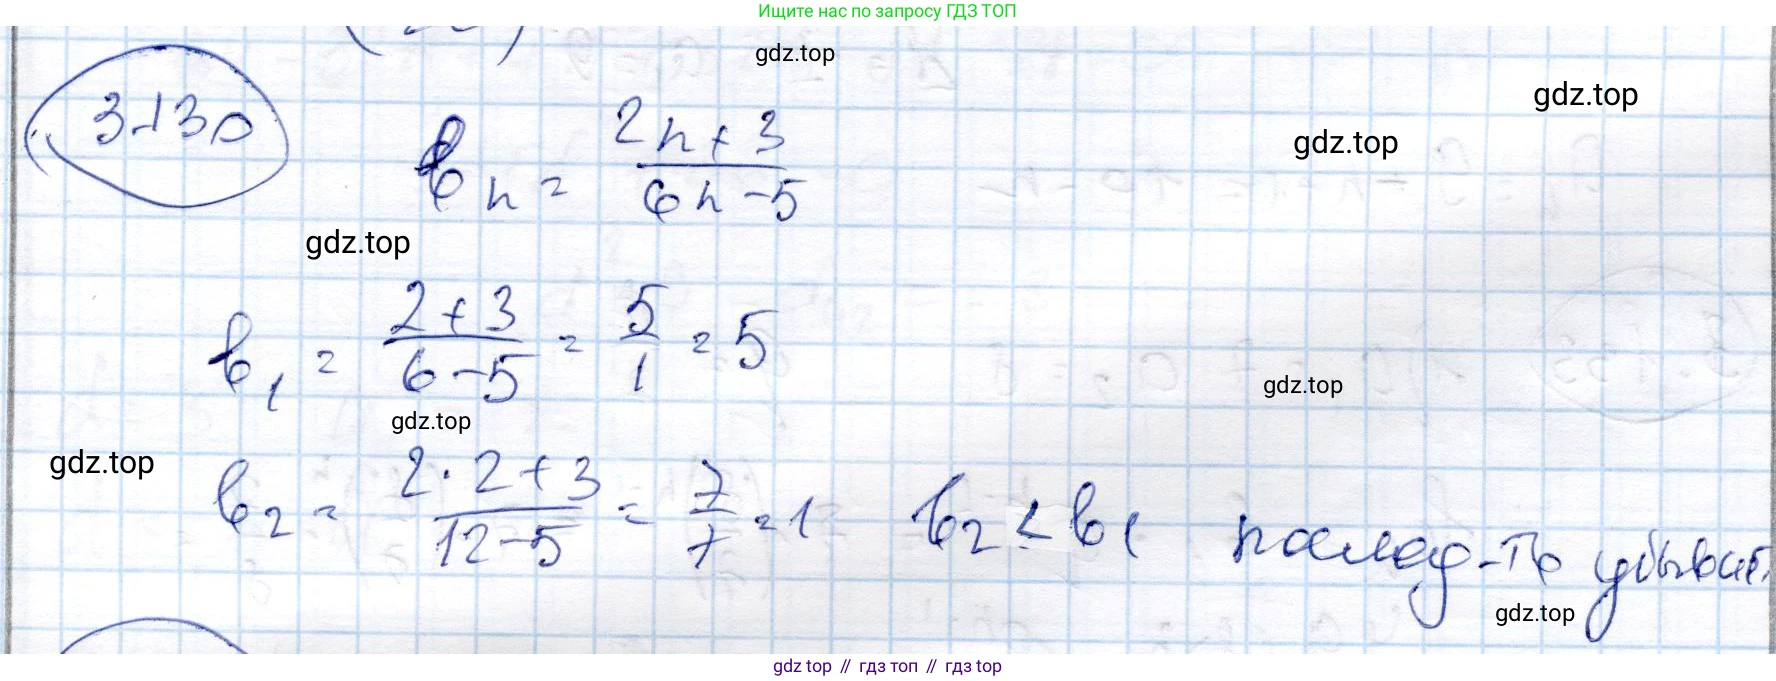 Ищите нас по запросу ГДЗ ТОП
gdz.top
gdz.top
3.130
bn = 2n + 3 / 6n - 5
gdz.top
gdz.top
b1 = 2 + 3 / 6 - 5 = 5 / 1 = 5
gdz.top
gdz.top
gdz.top
b2 = 2 · 2 + 3 / 12 - 5 = 7 / 7 = 1 b2 < b1 послед-ть убывает.
gdz.top
gdz top // гдз топ // гдз top